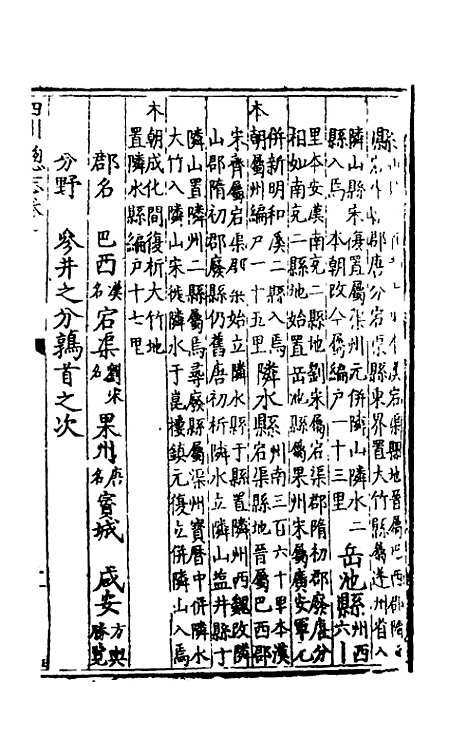 漢宕渠縣地晉屬巴西郡隋
郡唐分宕渠縣東界置大竹縣屬蓬州省入
隣山縣宋復置屬渠州元併隣山隣水二
縣入焉 本朝改今屬編戶一十三里 岳池縣州西六十
里本安漢南充二縣地劉宋屬宕渠郡隋初郡廢唐分
相如南充二縣地始置岳池縣屬果州宋屬廣安軍元
併新明和溪二縣入焉
本朝屬州編戶一十五里 隣水縣州南三百六十里本漢宕渠縣地晉屬巴西郡
宋齊屬宕渠郡梁始立隣水縣于縣置隣州西魏改隣
山郡隋初郡廢縣仍舊唐初析隣水立隣山鹽井縣于
隣山置隣州二縣屬焉尋廢縣屬渠州寶曆中併隣水
大竹入隣山宋徙隣水于崑樓鎮元復立併隣山入焉
本朝成化間復析大竹地
置隣水縣編戶十七里
郡名 巴西漢名 宕渠劉宋名 果州唐名 賨城 咸安方輿勝覽
分野 參井之分鶉首之次
四川總志卷